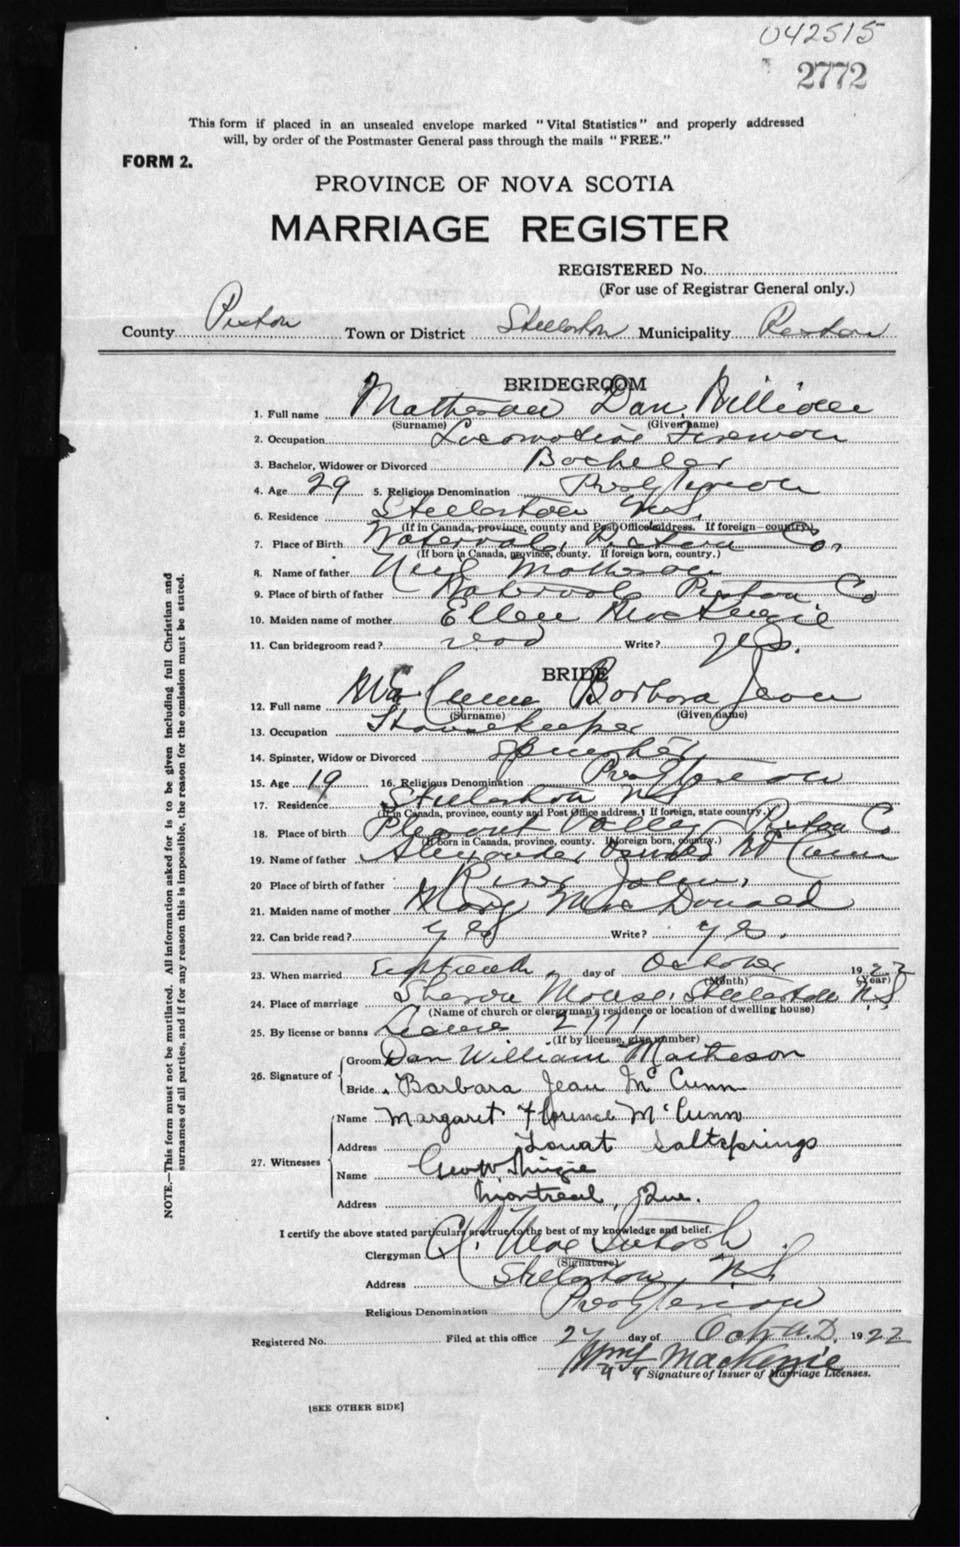 042515
2772
This form if placed in an unsealed envelope marked "Vital Statistics" and properly addressed
will, by order of the Postmaster General pass through the mails "FREE."
FORM 2.
PROVINCE OF NOVA SCOTIA
MARRIAGE REGISTER
REGISTERED No.
(For use of Registrar General only.)
County Pictou Town or District Stellarton Municipality Pictou
BRIDEGROOM
1. Full name Matheson Dan William
(Surname) (Given name)
2. Occupation Locomotive Fireman
3. Bachelor, Widower or Divorced Bachelor
4. Age 29 5. Religious Denomination Presbyterian
6. Residence Stellarton N.S.
(If in Canada, province, county and Post Office address. If foreign—country.)
7. Place of Birth Watervale, Pictou Co.
(If born in Canada, province, county. If foreign born, country.)
8. Name of father Neil Matheson
9. Place of birth of father Watervale Pictou Co
10. Maiden name of mother Ellen MacKenzie
11. Can bridegroom read? read Write? yes.
BRIDE
12. Full name McCunn Barbara Jean
(Surname) (Given name)
13. Occupation Housekeeper
14. Spinster, Widow or Divorced Spinster
15. Age 19 16. Religious Denomination Presbyterian
17. Residence Stellarton N.S.
(If in Canada, province, county and Post Office address. If foreign, state country.)
18. Place of birth Pleasant Valley, Pictou Co
(If born in Canada, province, county. If foreign born, country.)
19. Name of father Alexander McCunn
20 Place of birth of father River John,
21. Maiden name of mother Mary MacDonald
22. Can bride read? yes Write? yes.
23. When married Eighteenth, day of October 1922
(Month) (Year)
24. Place of marriage Sharon Manse, Stellarton N.S.
(Name of church or clergyman's residence or location of dwelling house)
25. By license or banns License 2771
(If by license, give number)
26. Signature of Groom Dan William Matheson
Bride Barbara Jean McCunn
27. Witnesses Name Margaret Florence McCunn
Address Saltsprings
Name Geo W
Address Montreal, Que.
I certify the above stated particulars are true to the best of my knowledge and belief.
Clergyman C. MacIntosh
(Signature)
Address Stellarton, N.S.
Religious Denomination Presbyterian
Registered No. Filed at this office 24 day of Oct A.D. 1922
MacKenzie
Signature of Issuer of Marriage Licenses.
[SEE OTHER SIDE]
NOTE.—This form must not be mutilated. All information asked for is to be given including full Christian and
surnames of all parties, and if for any reason this is impossible, the reason for the omission must be stated.